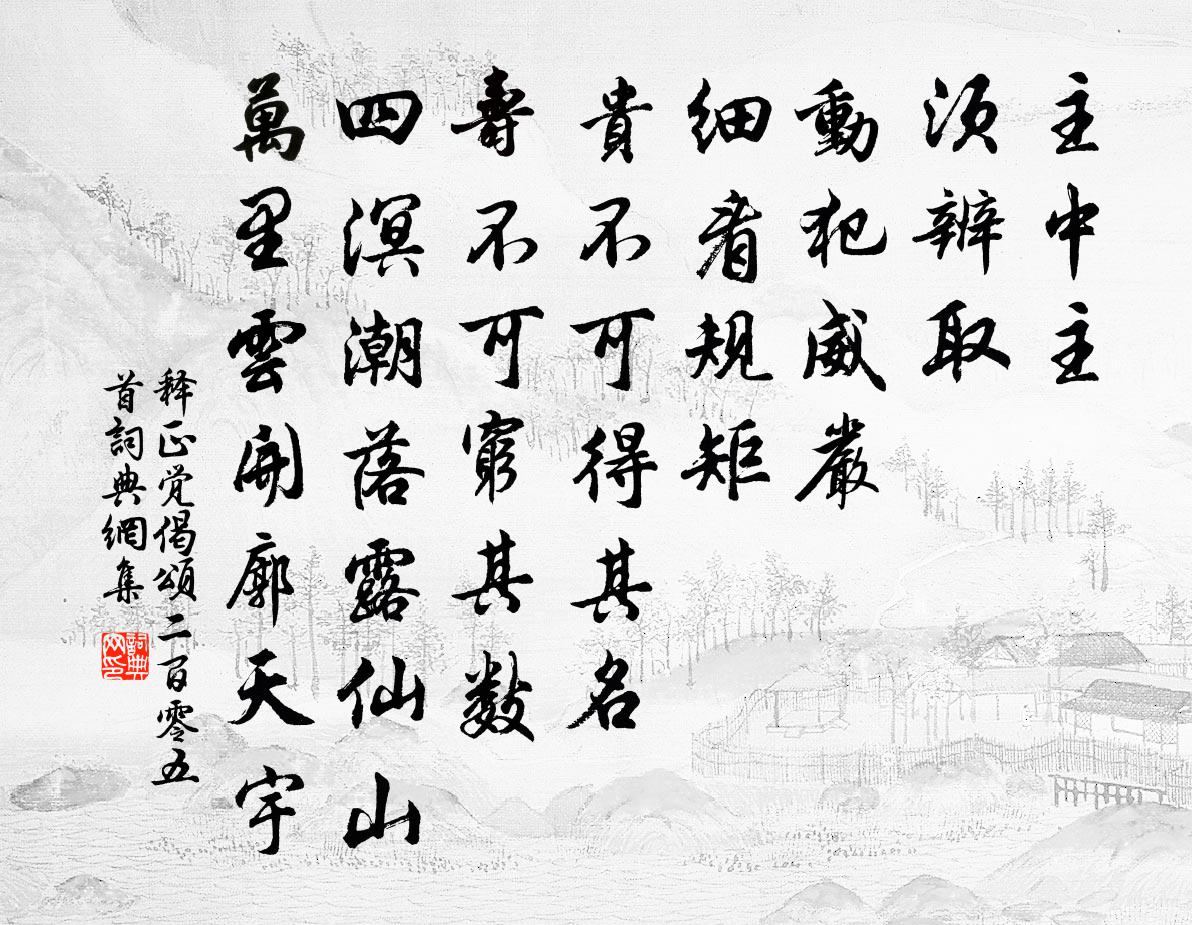 主中主
須辨取
動犯威嚴
細看規矩
貴不可得其名
壽不可窮其数
四溟潮落露仙山
萬里雲開廓天宇
释正觉偈頌二百零五
首詞典網集
詞典网印